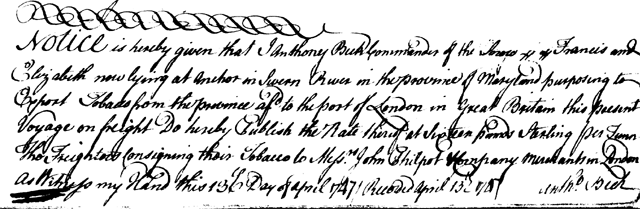 Notice is hereby given that I Anthony Beck Commander of the Snow Francis and
Elizabeth now lying at anchor in Severn River in the province of Maryland purposing to
Export Tobacco from the province afsd to the port of London in Great Britain this present
Voyage on freight Do hereby Publish the Rate thereof at Sixteen pounds Sterling per Tunn
The Freighters consigning their Tobacco to Messrs John Philpot & Company Merchants in London
As Witness my Hand this 13th Day of April 1747 Recorded April 13th 1747 Anth. Beck